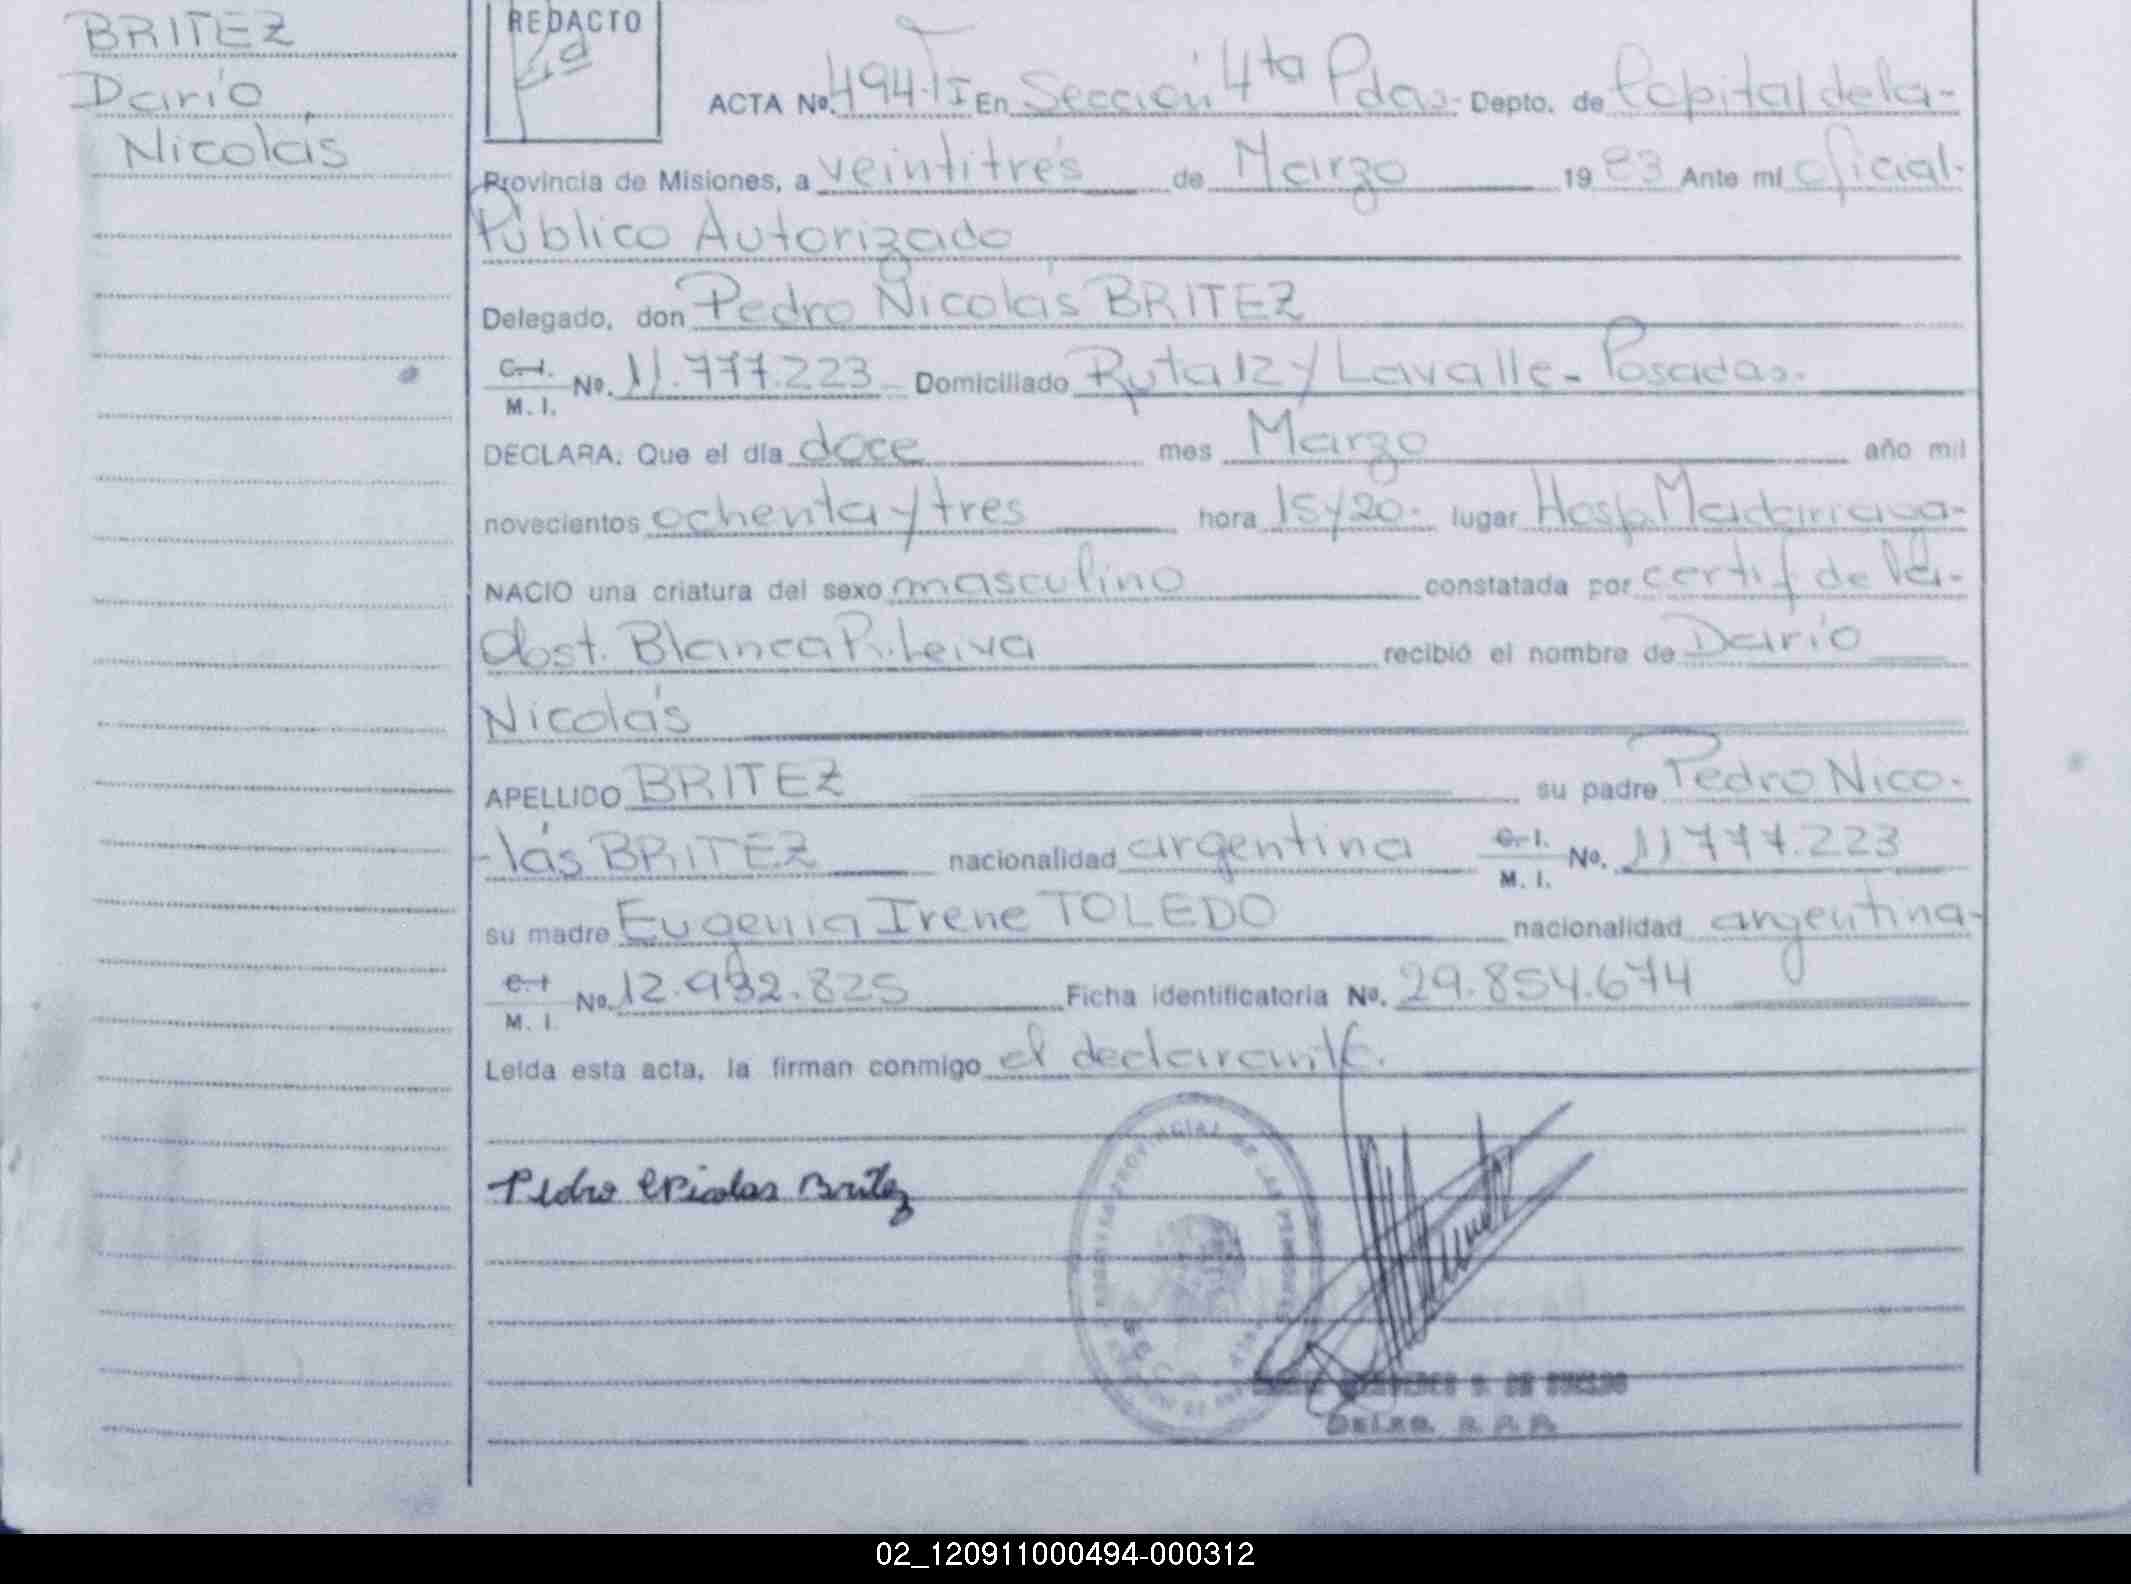 BRITEZ
Darío
Nicolás
REDACTO
ACTA Nº. 494-TI En Sección 4ta Pdas- Depto. de Capital de la-
Provincia de Misiones, a veintitrés de Marzo 1983 Ante mí oficial-
Público Autorizado
Delegado, don Pedro Nicolás BRITEZ
C.I. M. I. Nº. 11.777.223 Domiciliado Ruta 12 y Lavalle- Posadas-
DECLARA: Que el día doce mes Marzo año mil
novecientos ochenta y tres hora 15 y 20- lugar Hosp. Madariaga-
NACIO una criatura del sexo masculino constatada por certif de la-
Obst. Blanca R. Leiva recibió el nombre de Darío
Nicolás
APELLIDO BRITEZ su padre Pedro Nico-
-lás BRITEZ nacionalidad argentina C.I. M. I. Nº. 11777.223
su madre Eugenia Irene TOLEDO nacionalidad argentina-
C.I M. I. Nº. 12.932.825 Ficha identificatoria Nº. 29.854.674
Leída esta acta, la firman conmigo el declarante.
Pedro Nicolas Britez
PROVINCIAL DE LAS PERSONAS
02_120911000494-000312